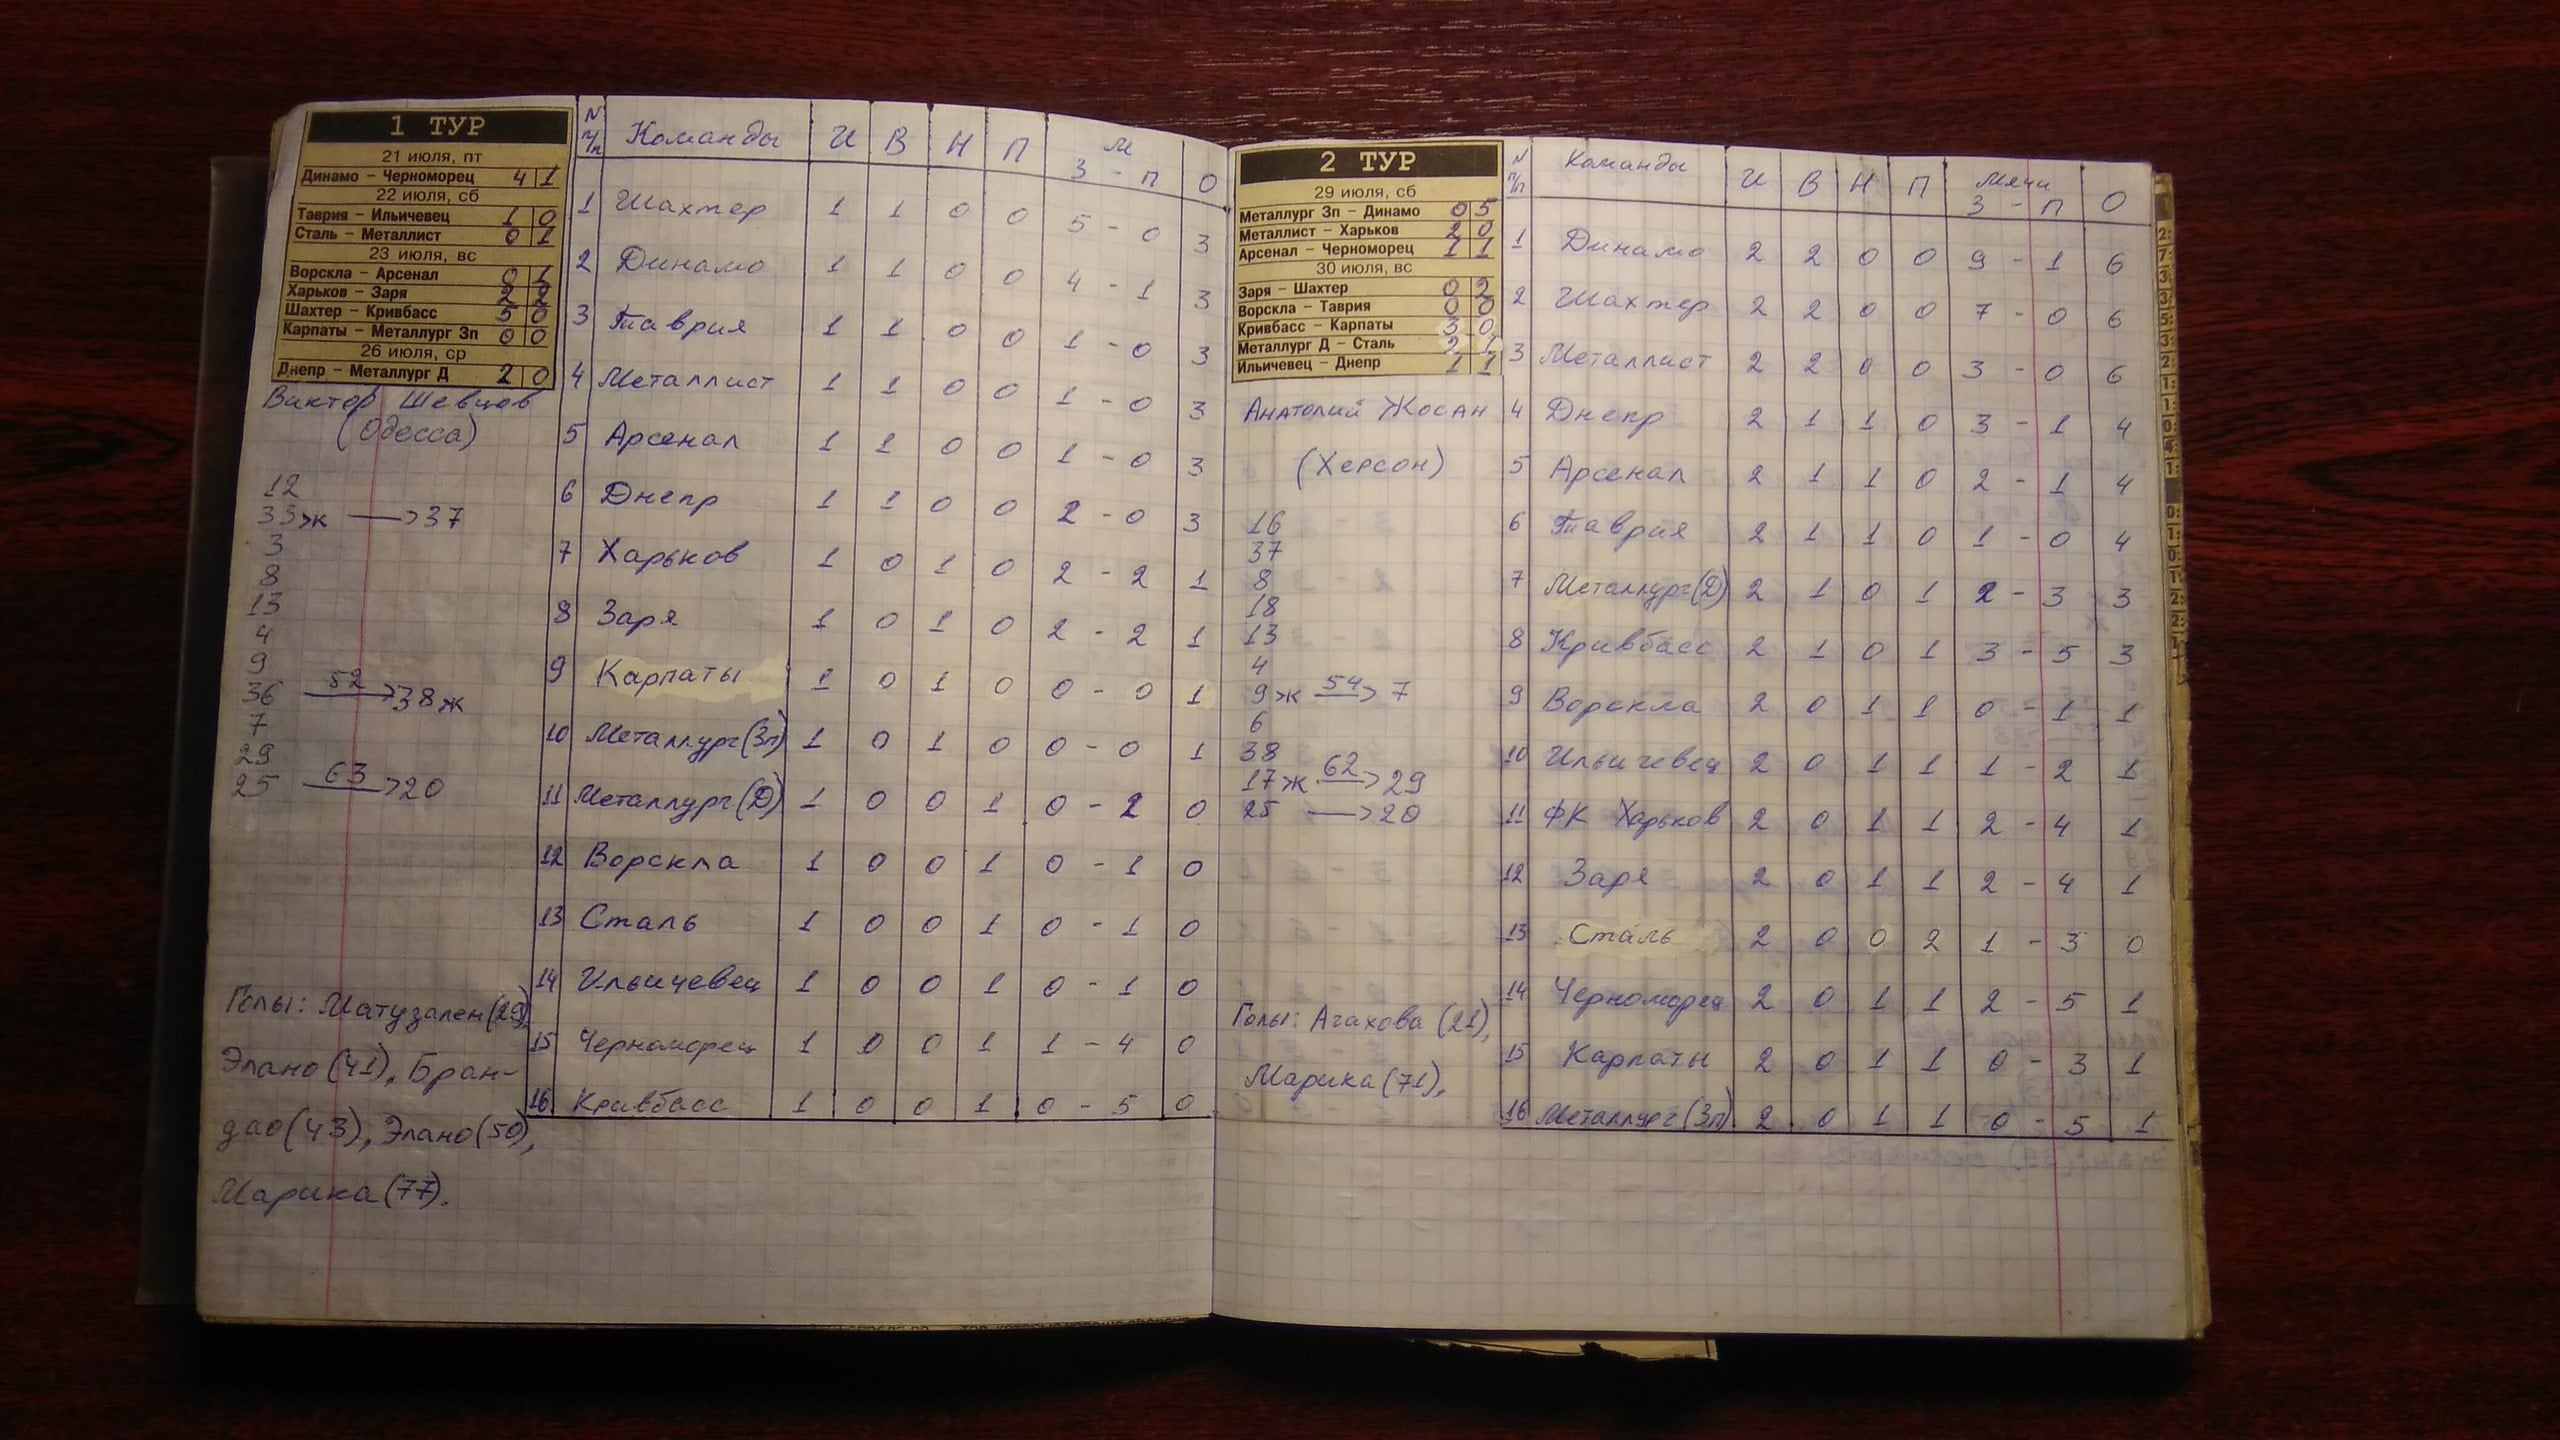 1 ТУР
21 июля, пт
Динамо – Черноморец 4 1
22 июля, сб
Таврия – Ильичевец 1 0
Сталь – Металлист 0 1
23 июля, вс
Ворскла – Арсенал 0 1
Харьков – Заря 2 2
Шахтер – Кривбасс 5 0
Карпаты – Металлург Зп 0 0
26 июля, ср
Днепр – Металлург Д 2 0
Виктор Шевцов
(Одесса)
12
33ж → 37
3
8
13
4
9
36 52→ 38ж
7
29
25 63→ 20
Голы: Матузален (29),
Элано (41), Бран-
дао (43), Элано (50),
Марика (77).
N п/п Команды И В Н П М З - П О
1 Шахтер 1 1 0 0 5 - 0 3
2 Динамо 1 1 0 0 4 - 1 3
3 Таврия 1 1 0 0 1 - 0 3
4 Металлист 1 1 0 0 1 - 0 3
5 Арсенал 1 1 0 0 1 - 0 3
6 Днепр 1 1 0 0 2 - 0 3
7 Харьков 1 0 1 0 2 - 2 1
8 Заря 1 0 1 0 2 - 2 1
9 Карпаты 1 0 1 0 0 - 0 1
10 Металлург (Зп) 1 0 1 0 0 - 0 1
11 Металлург (Д) 1 0 0 1 0 - 2 0
12 Ворскла 1 0 0 1 0 - 1 0
13 Сталь 1 0 0 1 0 - 1 0
14 Ильичевец 1 0 0 1 0 - 1 0
15 Черноморец 1 0 0 1 1 - 4 0
16 Кривбасс 1 0 0 1 0 - 5 0
2 ТУР
29 июля, сб
Металлург Зп – Динамо 0 5
Металлист – Харьков 2 0
Арсенал – Черноморец 1 1
30 июля, вс
Заря – Шахтер 0 2
Ворскла – Таврия 0 0
Кривбасс – Карпаты 3 0
Металлург Д – Сталь 2 1
Ильичевец – Днепр 1 1
Анатолий Жосан
(Херсон)
16
37
8
18
13
4
9ж 54→ 7
6
38
17ж 62→ 29
25 → 20
Голы: Агахова (21),
Марика (71).
N п/п Команды И В Н П Мячи З - П О
1 Динамо 2 2 0 0 9 - 1 6
2 Шахтер 2 2 0 0 7 - 0 6
3 Металлист 2 2 0 0 3 - 0 6
4 Днепр 2 1 1 0 3 - 1 4
5 Арсенал 2 1 1 0 2 - 1 4
6 Таврия 2 1 1 0 1 - 0 4
7 Металлург (Д) 2 1 0 1 2 - 3 3
8 Кривбасс 2 1 0 1 3 - 5 3
9 Ворскла 2 0 1 1 0 - 1 1
10 Ильичевец 2 0 1 1 1 - 2 1
11 ФК Харьков 2 0 1 1 2 - 4 1
12 Заря 2 0 1 1 2 - 4 1
13 Сталь 2 0 0 2 1 - 3 0
14 Черноморец 2 0 1 1 2 - 5 1
15 Карпаты 2 0 1 1 0 - 3 1
16 Металлург (Зп) 2 0 1 1 0 - 5 1